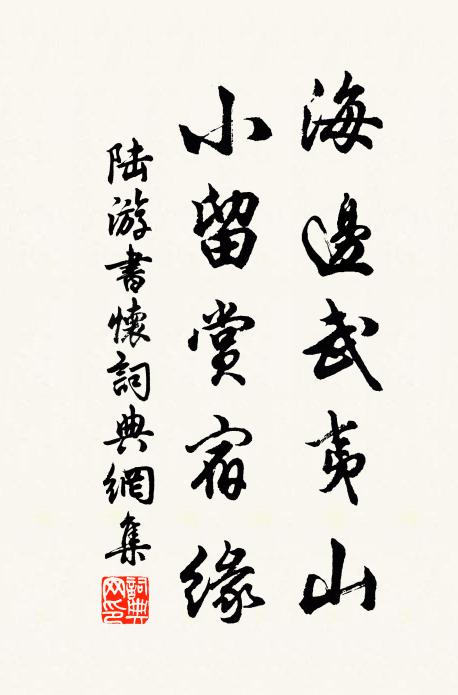 海邊武夷山
小留賞宿緣
陸游書懷詞典網集
詞典網印